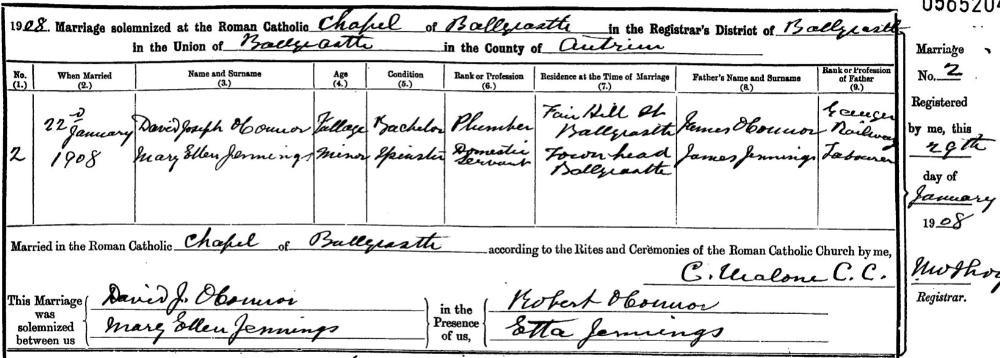 0565204
1908. Marriage solemnized at the Roman Catholic Chapel of Ballycastle in the Registrar's District of Ballycastle
in the Union of Ballycastle in the County of Antrim
No. (1.) When Married (2.) Name and Surname (3.) Age (4.) Condition (5.) Rank or Profession (6.) Residence at the Time of Marriage (7.) Father's Name and Surname (8.) Rank or Profession of Father (9.)
2 22d January 1908
David Joseph O'Connor Full age Bachelor Plumber Fair Hill St Ballycastle James O'Connor Ganger Railway
Mary Ellen Jennings Minor Spinster Domestic Servant Townhead Ballycastle James Jennings Labourer
Married in the Roman Catholic Chapel of Ballycastle according to the Rites and Ceremonies of the Roman Catholic Church by me,
C. Malone C. C.
This Marriage was solemnized between us
David J. O'Connor
Mary Ellen Jennings
in the Presence of us,
Robert O'Connor
Etta Jennings
Marriage
No. 2
Registered
by me, this
29th
day of
January
1908
Registrar.